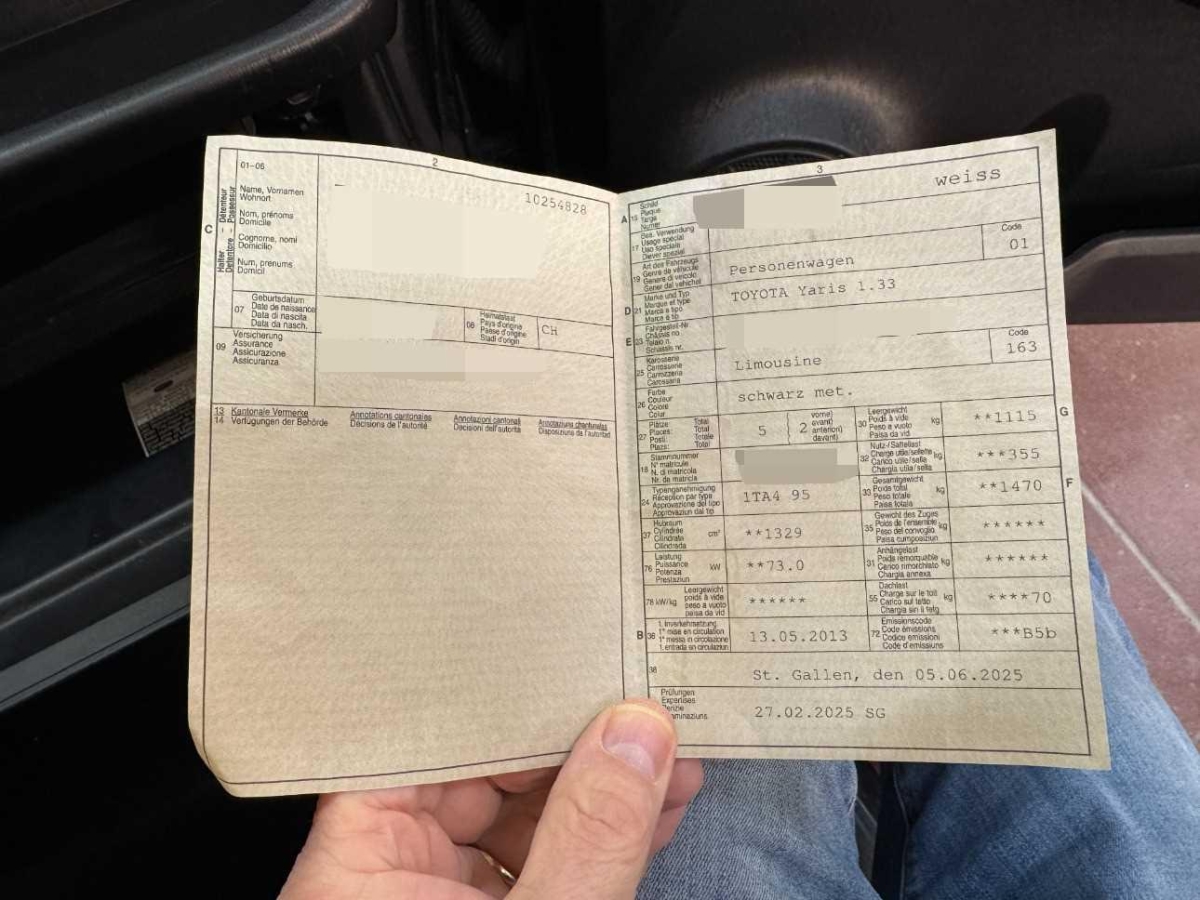 2
01-06
10254828
C
Halter Détenteur
Detentore Possessur
Name, Vornamen
Wohnort
Nom, prénoms
Domicile
Cognome, nomi
Domicilio
Num, prenums
Domicil
07
Geburtsdatum
Date de naissance
Data di nascita
Data da nasch.
Heimatstaat
Pays d'origine
Paese d'origine
Stadi d'origin
CH
09
Versicherung
Assurance
Assicurazione
Assicuranza
13
14
Kantonale Vermerke
Verfügungen der Behörde
Annotations cantonales
Décisions de l'autorité
Annotazioni cantonali
Decisioni dell'autorità
Annotaziuns chantunalas
Disposiziuns da l'autoritad
3
weiss
A
Schild
Plaque
Targa
Numer
17
Bes. Verwendung
Usage spécial
Uso speciale
Diever spezial
19
Art des Fahrzeugs
Genre de véhicule
Genere di veicolo
Gener dal vehichel
Personenwagen
Code
01
D
21
Marke und Typ
Marque et type
Marca e tipo
Marca e tip
TOYOTA Yaris 1.33
E
23
Fahrgestell-Nr.
Châssis no
Telaio n.
Schassis nr.
25
Karosserie
Carrosserie
Carrozzeria
Carossaria
Limousine
Code
163
26
Farbe
Couleur
Colore
Colur
schwarz met.
27
Plätze Total
Places: Total
Posti: Totale
Plazs: Total
5
2
vorne)
avant)
anteriori)
davant)
30
Leergewicht
Poids à vide
Peso a vuoto
Paisa da vid
kg
**1115
G
18
Stammnummer
N° matricule
N. di matricola
Nr. da matricla
32
Nutz-/Sattellast
Charge utile/sellette
Carico utile/sella
Chargia utila/sella
kg
***355
24
Typengenehmigung
Réception par type
Approvazione del tipo
Approvaziun dal tip
1TA4 95
33
Gesamtgewicht
Poids total
Peso totale
Paisa totala
kg
**1470
F
37
Hubraum
Cylindrée
Cilindrata
Cilindrada
cm³
**1329
35
Gewicht des Zuges
Poids de l'ensemble
Peso del convoglio
Paisa cumposiziun
kg
******
76
Leistung
Puissance
Potenza
Prestaziun
kW
**73.0
31
Anhängelast
Poids remorquable
Carico rimorchiato
Chargia annexa
kg
******
78 kW/kg
Leergewicht
poids à vide
peso a vuoto
paisa da vid
******
55
Dachlast
Charge sur le toit
Carico sul tetto
Chargia sin il tetg
kg
****70
B
36
1. Inverkehrsetzung
1re mise en circulation
1a messa in circolazione
1. entrada en circulaziun
13.05.2013
72
Emissionscode
Code émissions
Codice emissioni
Code d'emissiuns
***B5b
38
St. Gallen, den 05.06.2025
Prüfungen
Expertises
27.02.2025 SG